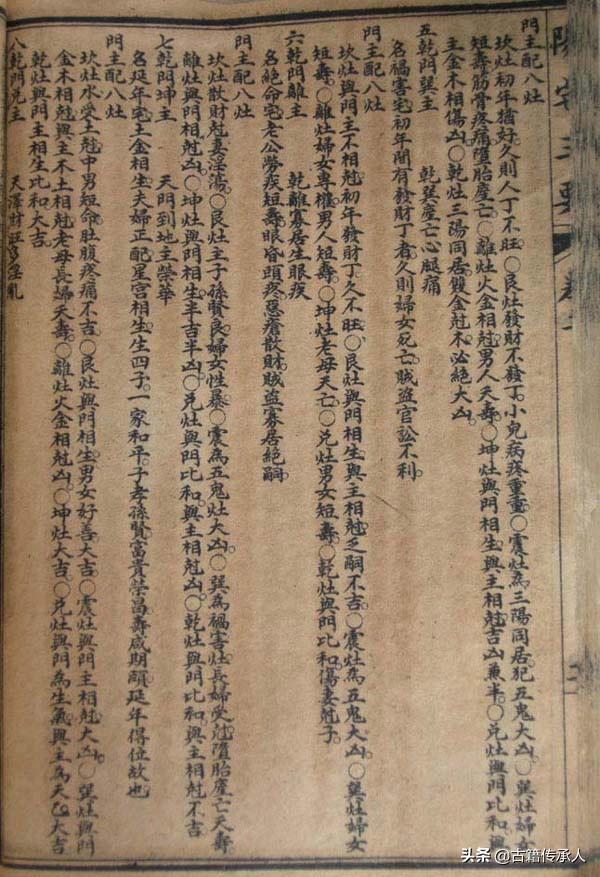 陽宅三要 卷二
門主配八灶
坎灶初年猶好久則人丁不旺○艮灶發財不發丁小兒病疼重重○震灶為三陽同居犯五鬼大凶○巽灶婦女
短壽筋骨疼痛墮胎產亡○離灶火金相尅男人夭壽○坤灶與門相生與主相尅吉凶兼半○兌灶與門比和與
主金木相傷凶○乾灶三陽同居雙金尅木必絕大凶
五乾門巽主 乾巽產亡心腿痛
名禍害宅初年間有發財丁者久則婦女死亡賊盜官訟不利
門主配八灶
坎灶與門主不相尅初年發財丁久不旺○艮灶與門相生與主相尅乏嗣不吉○震灶為五鬼大凶○巽灶婦女
短壽○離灶婦女專權男人短壽○坤灶老母夭亡○兌灶男女短壽○乾灶與門比和傷妻尅子
六乾門離主 乾離寡居生眼疾
名絕命宅老公勞疾短壽眼昏頭疼惡瘡散財賊盜寡居絕嗣
門主配八灶
坎灶散財尅妻淫蕩○艮灶主子孫賢良婦女性暴○震為五鬼灶大凶○巽為禍害灶長婦受尅墮胎產亡夭壽
離灶與門相尅凶○坤灶與門相生半吉半凶○兌灶與門比和與主相尅凶○乾灶與門比和與主相尅不吉
七乾門坤主 天門到地主榮華
名延年宅土金相生夫婦正配星宮相生生四子一家和平子孝孫賢富貴榮昌壽咸期頤延年得位故也
門主配八灶
坎灶水受土尅中男短命肚腹疼痛不吉○艮灶與門相生男女好善大吉○震灶與門主相尅大凶○巽灶與門
金木相尅與主木土相尅老母長婦夭壽○離灶火金相尅凶○坤灶大吉○兌灶與門為生氣與主為天乙大吉
乾灶與門主相生比和大吉
八乾門兌主 天澤財旺多淫亂
头条 @古籍传承人